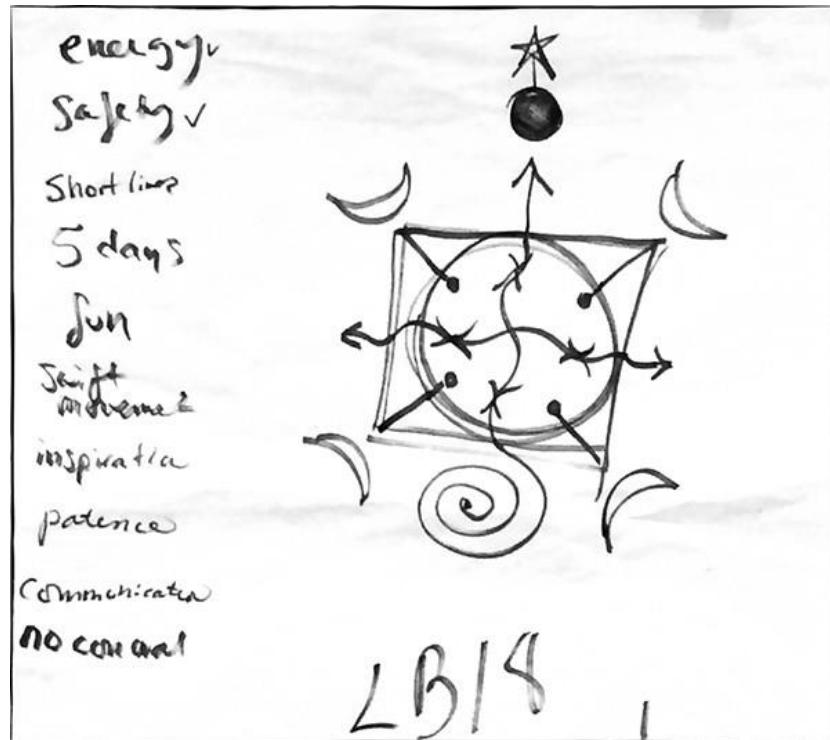 energy ✓
safety ✓
Short lines
5 days
fun
swift
movement
inspiration
patence
Communication
no
LB18